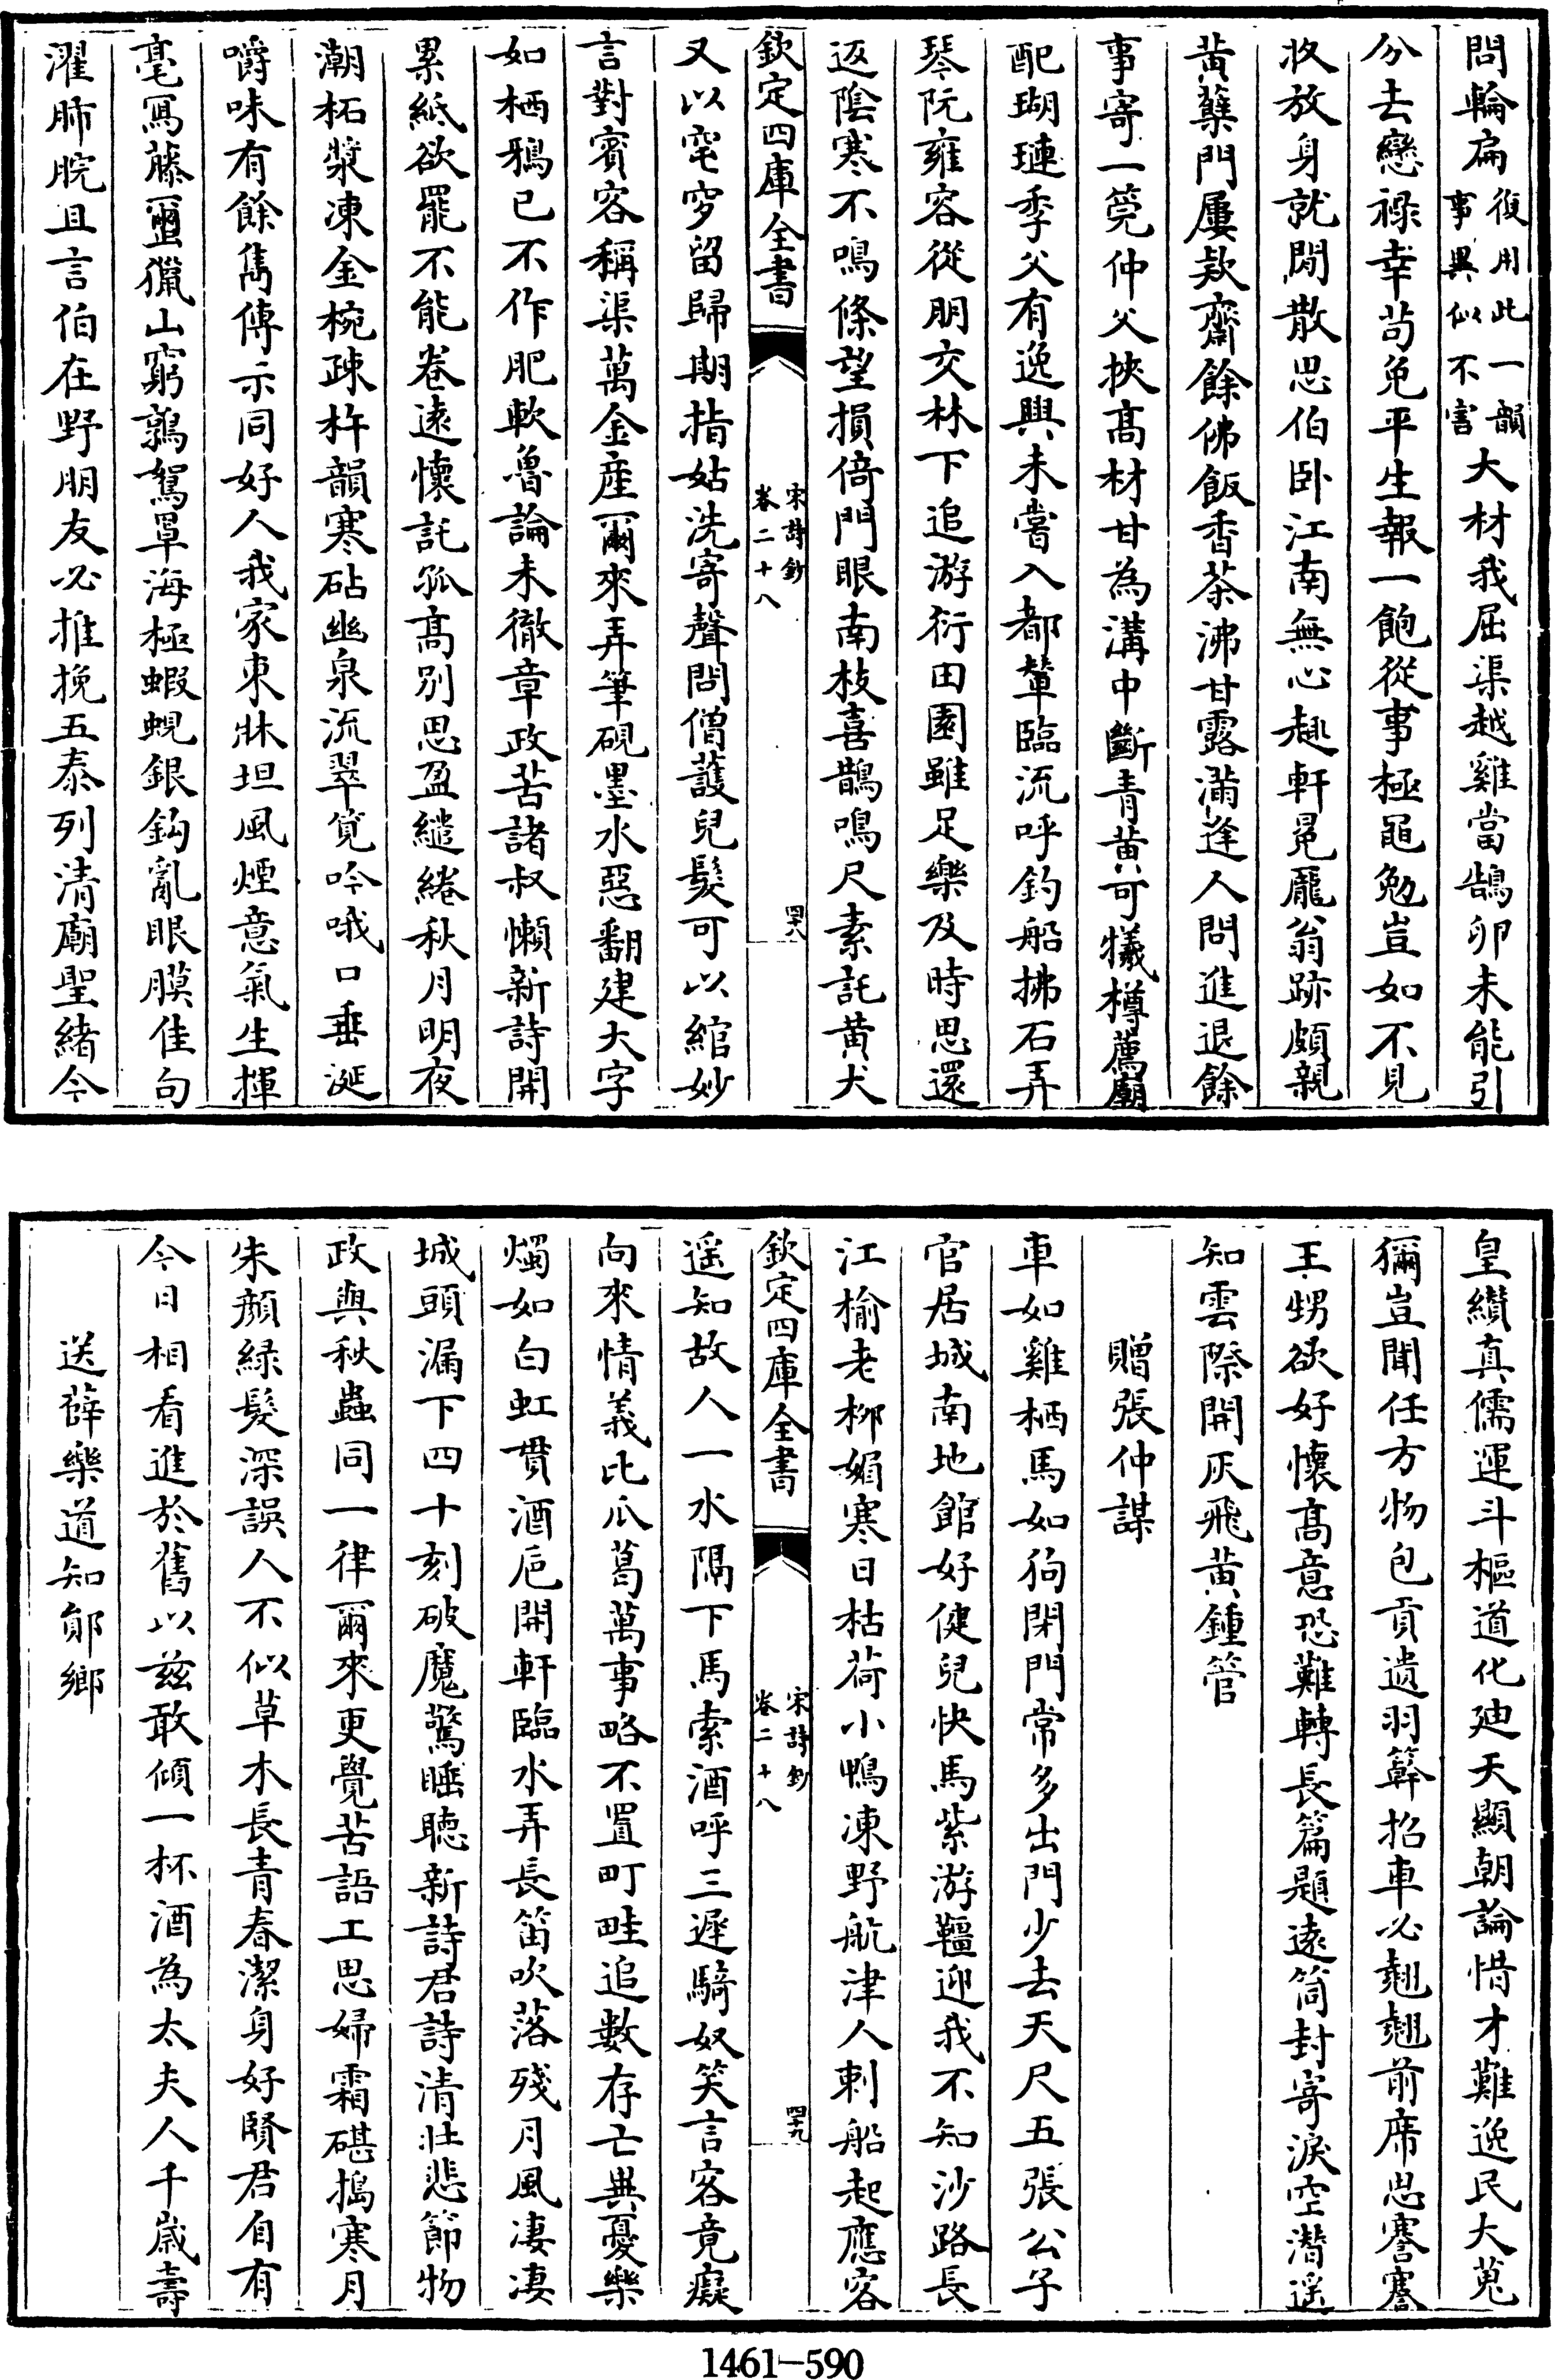 問輪扁復用此一韻事異似不害大材我屈渠越雞當鵠卵未能引
分去戀祿幸茍免平生報一飽從事極黽勉豈如不見
收放身就閒散思伯卧江南無心趣軒冕龎翁跡頗親
黃蘖門屢欵齋餘佛飯香茶沸甘露滿逢人問進退餘
事寄一筦仲父挾髙材甘為溝中斷青黄可犧樽薦廟
配瑚璉季父有逸興未嘗入都輦臨流呼釣船拂石弄
琴阮雍容從朋交林下追游衍田園雖足樂及時思還
返陰寒不鳴條望損倚門眼南枝喜鵲鳴尺素託黄犬
欽定四庫全書
宋詩鈔
卷二十八
四十八
又以窀穸留歸期指姑洗寄聲問僧護兒髮可以綰妙
言對賓客稱渠萬金産爾來弄筆硯墨水惡翻建大字
如栖鴉已不作肥軟魯論未徹章政苦諸叔懶新詩開
累紙欲罷不能卷遠懷託孤髙别思盈繾綣秋月明夜
潮柘漿凍金椀疎杵韻寒砧幽泉流翠筧吟哦口垂涎
嚼味有餘雋傳示同好人我家東牀坦風煙意氣生揮
毫寫藤璽獵山窮鶉鴽罩海極蝦蜆銀鈎亂眼膜佳句
濯肺脘且言伯在野朋友必推挽五泰列清廟聖緒今
皇纘真儒運斗樞道化廸天顯朝論惜才難逸民大蒐
獮豈聞任方物包貢遺羽簳招車必翹翹前席思謇謇
王甥欲好懷髙意恐難轉長篇題遠筒封寄淚空潸遥
知雲際開灰飛黄鍾管
贈張仲謀
車如雞栖馬如狗閉門常多出門少去天尺五張公子
官居城南地館好健兒快馬紫游韁迎我不知沙路長
江榆老柳媚寒日枯荷小鴨凍野航津人刺船起應客
欽定四庫全書
宋詩鈔
卷二十八
四十九
遥知故人一水隔下馬索酒呼三遲騎奴笑言客竟癡
向來情義比瓜葛萬事略不置町畦追數存亡異憂樂
燭如白虹貫酒巵開軒臨水弄長笛吹落殘月風凄凄
城頭漏下四十刻破魔驚睡聴新詩君詩清壯悲節物
政與秋蟲同一律爾來更覺苦語工思婦霜碪搗寒月
朱顔緑髮深誤人不似草木長青春潔身好賢君自有
今日相看進於舊以兹敢傾一杯酒為太夫人千嵗壽
送薛樂道知鄖鄉
1461—590